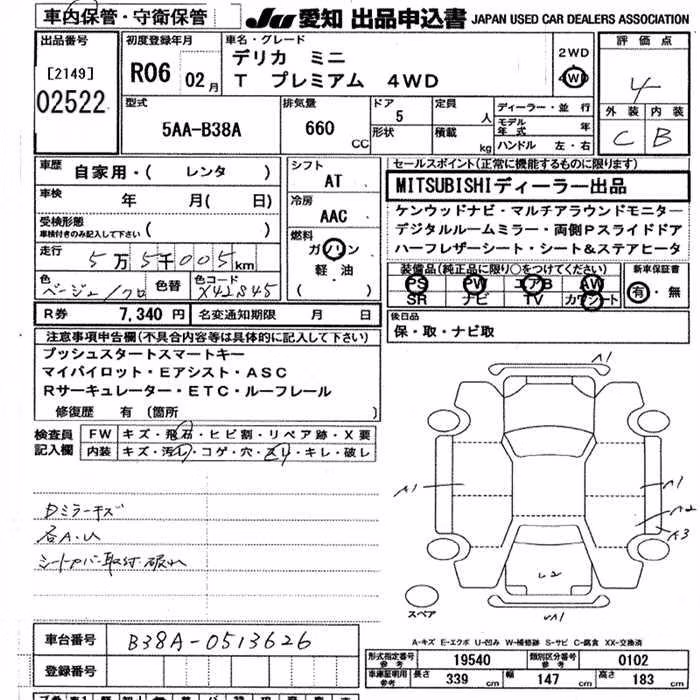 車内保管・守衛保管
JU 愛知 出品申込書 JAPAN USED CAR DEALERS ASSOCIATION
出品番号
[2149]
02522
初度登録年月
R06 02 月
車名・グレード
デリカ ミニ
T プレミアム 4WD
2WD
4WD
評価点
4
外装 内装
C B
型式
5AA-B38A
排気量
660 CC
ドア
5
形状
定員 人
積載 kg
ディーラー・並行
モデル年式 年
ハンドル 左・右
車歴 自家用・( レンタ )
車検 年 月( 日)
受検形態
車検付きのみ記入して下さい ( )
走行 5万5千005km
色 ベージュ/クロ 色替 色コード X42845
シフト
AT
冷房
AAC
燃料
ガソリン
軽・油
( )
セールスポイント(正常に機能するものに限ります)
MITSUBISHIディーラー出品
ケンウッドナビ・マルチアラウンドモニター
デジタルルームミラー・両側Pスライドドア
ハーフレザーシート・シート&ステアヒータ
装備品(純正品に限り○をつけてください)
PS PW エアB AW
SR ナビ TV カワシート
新車保証書
有・無
R券 7,340 円 名変通知期限 月 日
後日品
保・取・ナビ取
注意事項申告欄(不具合内容等は具体的に記入して下さい)
プッシュスタートスマートキー
マイパイロット・Eアシスト・ASC
Rサーキュレーター・ETC・ルーフレール
修復歴 有 (箇所 )
検査員記入欄
FW キズ・飛石・ヒビ割・リペア跡・X要
内装 キズ・汚レ・コゲ・穴・スレ・キレ・破レ
Dミラーキズ
各A.U
シートカバー取付 破れ
A1
A1
A1
A2
A3
U2
UA1
スペア
A-キズ E-エクボ U-凹み W-補修跡 S-サビ C-腐食 XX-交換済
車台番号 B38A-0513626
登録番号
形式指定番号 参考 19540 類別区分番号 参考 0102
車庫証明用 参考 長さ 339 cm 幅 147 cm 高さ 183 cm